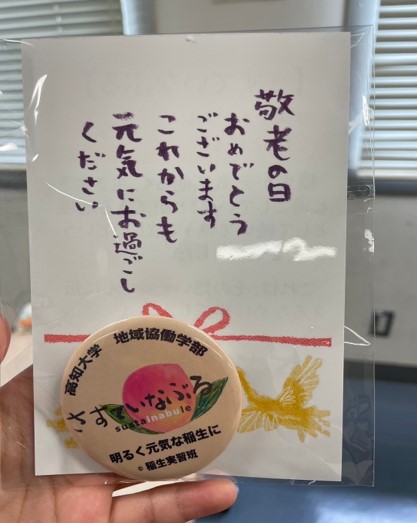 敬老の日
おめでとう
ございます
これからも
元気にお過ごし
ください
高知大学 地域協働学部
さすていなぶる
sustainabule
明るく元気な稲生に
© 稲生実習班